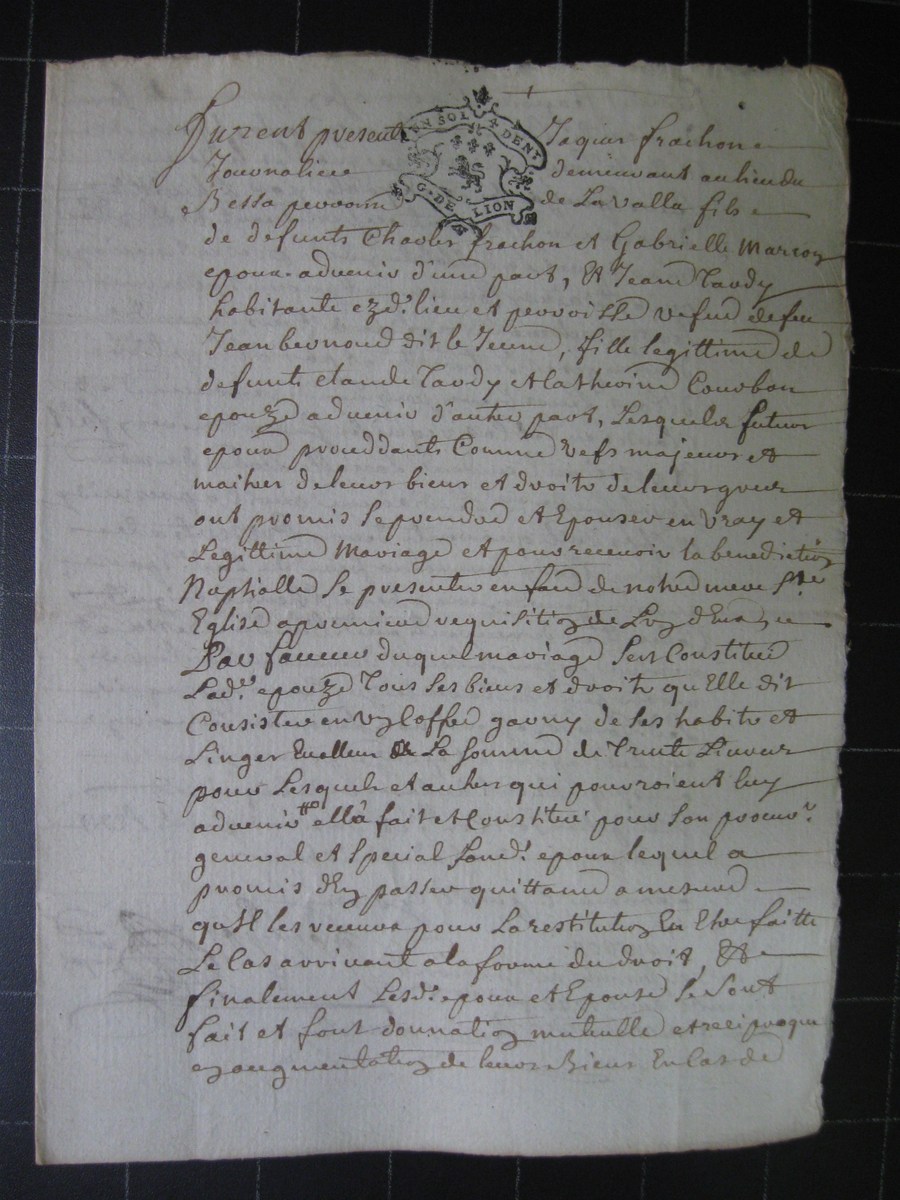 furent present Jaques frachon
VN SOL 4 DENr
G. DE LION
Journalier demeurant au lieu du
Bessa perroisse de La valla fils
de defunts Charles frachon et Gabrielle Marcoz
epoux advenir d'une part, Et Jeanne Tardy
habitante ezd. lieu et perroisse vefue de feu
Jean bernoud dit le Jeune, fille legittime de
defunts claude Tardy et Catherine Courbon
epouze advenir d'autre part, Lesquels futurs
epoux proceddants Comme vefs majeurs et
maitres de leurs biens et droits de leurs grez
ont promis se prendre et Epouser en vray et
Legittime Mariage et pour recevoir la benediction
Nuptialle se presenter en face de notre mere Ste
Eglise a premiere requisition de L'un d'Eux,
Par faveur duquel mariage s'est Constitué
Lad. epouze Tous ses biens et droits qu'Elle dit
Consister en un Coffre garny de ses habits et
Linges Evalleur de La somme de Trente Livres
pour Lesquels et autres qui pourroient luy
advenir ella fait et Constitué pour son procur.
general et special Sond. epoux lequel a
promis d'En passer quittance a mesure
qu'Il les recevra pour La restitution En Etre faitte
Le Cas arrivant a la forme du droit, Et
finalement Lesd. epoux et Epouse se sont
fait et font donnation mutuelle et reciproque
en augmentation de leurs Biens En Cas de